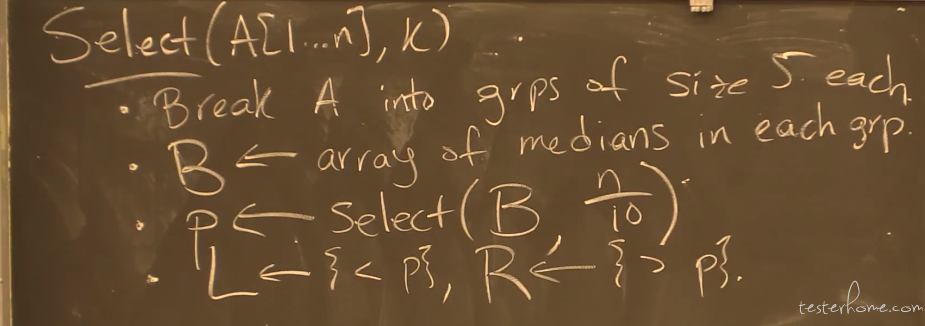 Select(A[1...n], k)
• Break A into grps of size 5 each.
• B ← array of medians in each grp.
• P ← Select(B, n/10).
• L ← {< p}, R ← {> p}.
testerhome.com